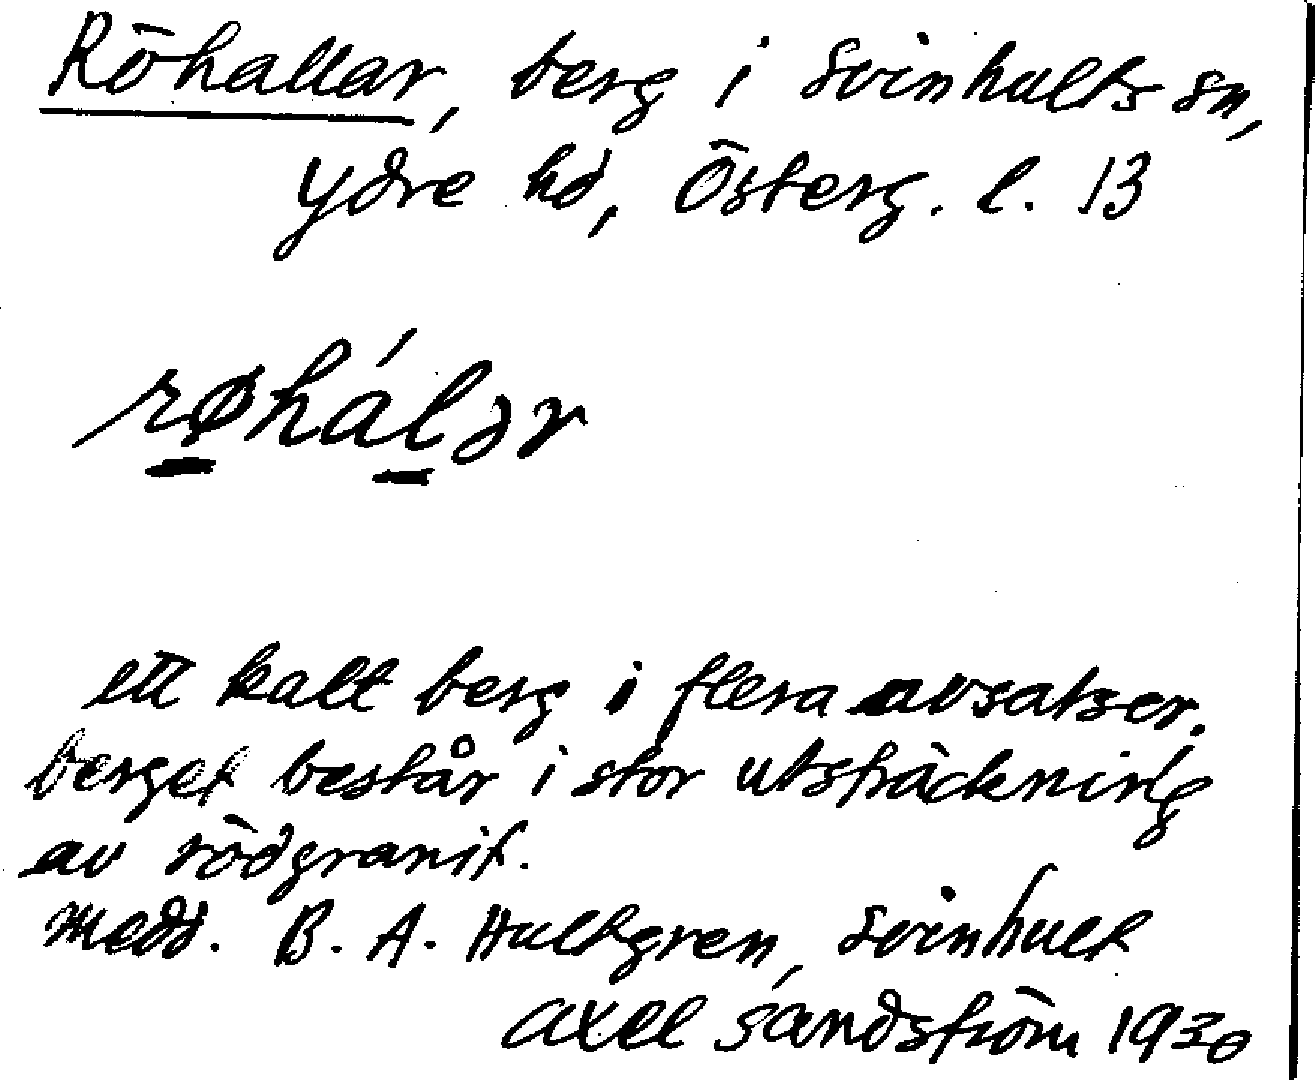 Röhallar, berg i Svinhults sn,
Ydre hd, Österg. l. 13
røhálər
ett kalt berg i flera avsatser.
berget består i stor utsträckning
av rödgranit.
Medd. B. A. Hultgren, Svinhult
Axel Sandström 1930